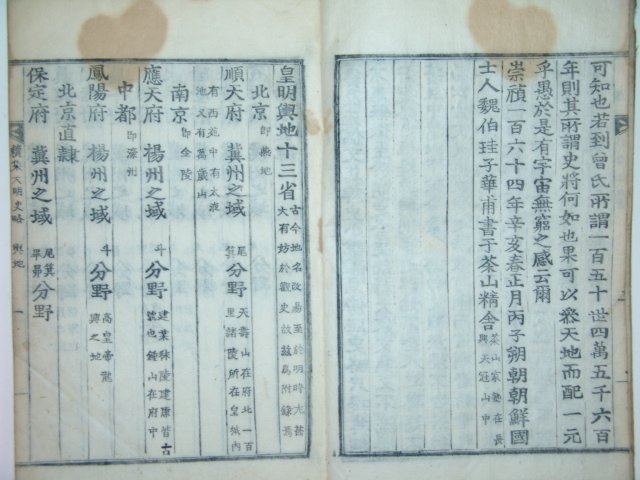 可知也若到曾氏所謂一百五十世四萬五千六百
年則其所謂史將何如也果可以參天地而配一元
乎愚於是有宇宙無窮之感云爾
崇禎一百六十四年辛亥春正月丙子朔朝鮮國
士人魏伯珪子華甫書于茶山精舍茶山家塾在長興天冠山中
皇明輿地十三省古今地名改易至於明時尤甚大有妨於觀史故玆爲附錄焉
北京即燕地
順天府 冀州之域尾箕分野天壽山在府北一百里諸陵所在皇城內有西苑中有太液池又有萬歲山
南京即金陵
應天府 楊州之域斗分野建業秣陵建康皆古號也鍾山在府中
中都即濠州
鳳陽府 楊州之域斗分野高皇帝龍興之地
北京直隷
保定府 冀州之域尾箕畢昴分野
大明史略 輿地 一